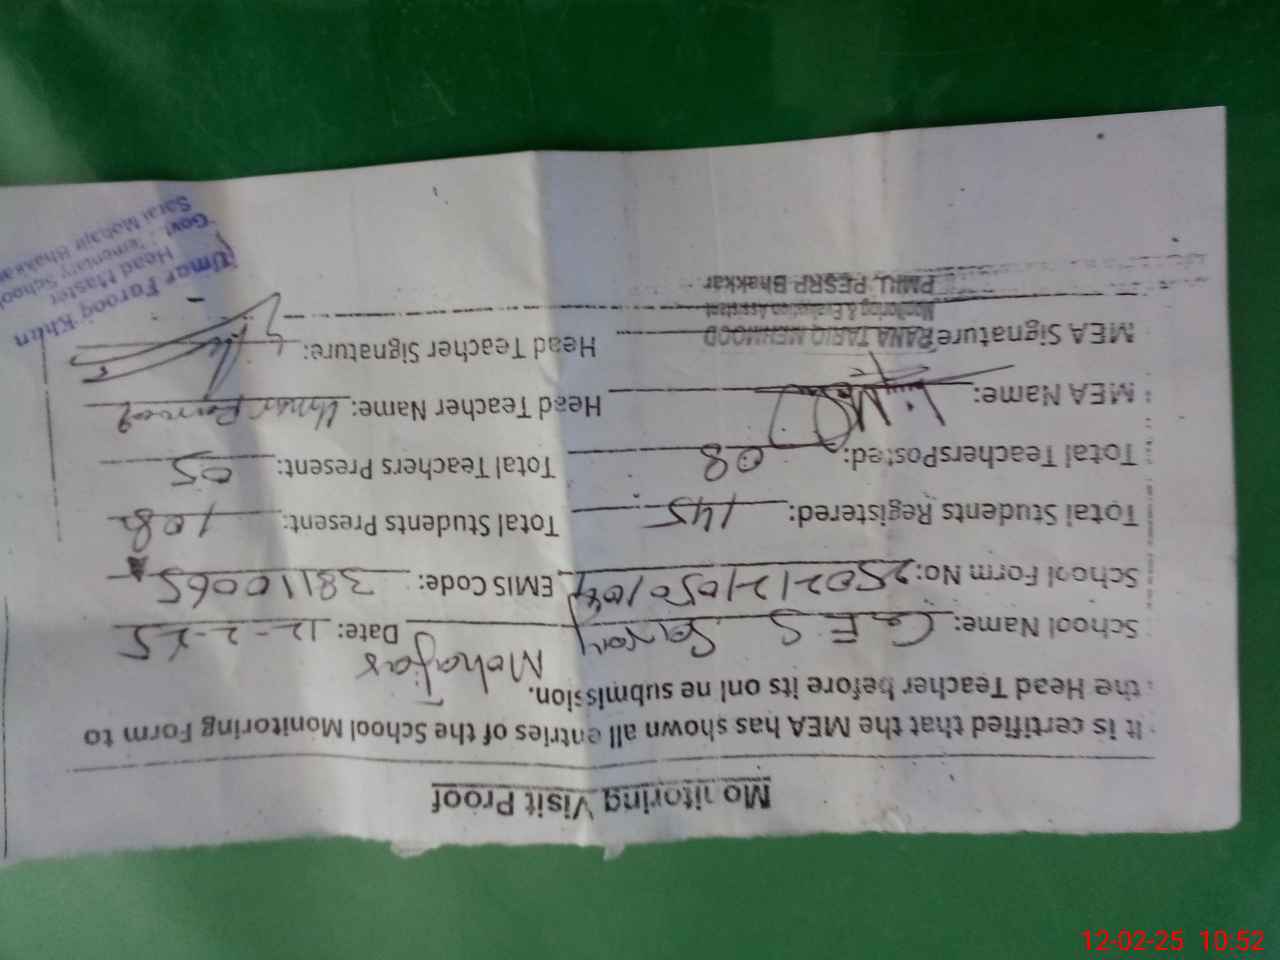 Monitoring Visit Proof
It is certified that the MEA has shown all entries of the School Monitoring Form to
the Head Teacher before its onl ne submission.
School Name: GES Saray Mohajar Date: 12-2-25
School Form No: EMIS Code: 38110065
Total Students Registered: 145 Total Students Present: 108
Total Teachers Posted: 08 Total Teachers Present: 05
MEA Name: Head Teacher Name: Umar Farooq
MEA Signature Head Teacher Signature:
RANA TARIQ MEHMOOD
Monitoring & Evaluation Assistant
PMIU, PESRP Bhakkar
Umar Farooq Khan
Head Master
Govt. Elementary School
Sarai Mohajir Bhakkar
12-02-25 10:52